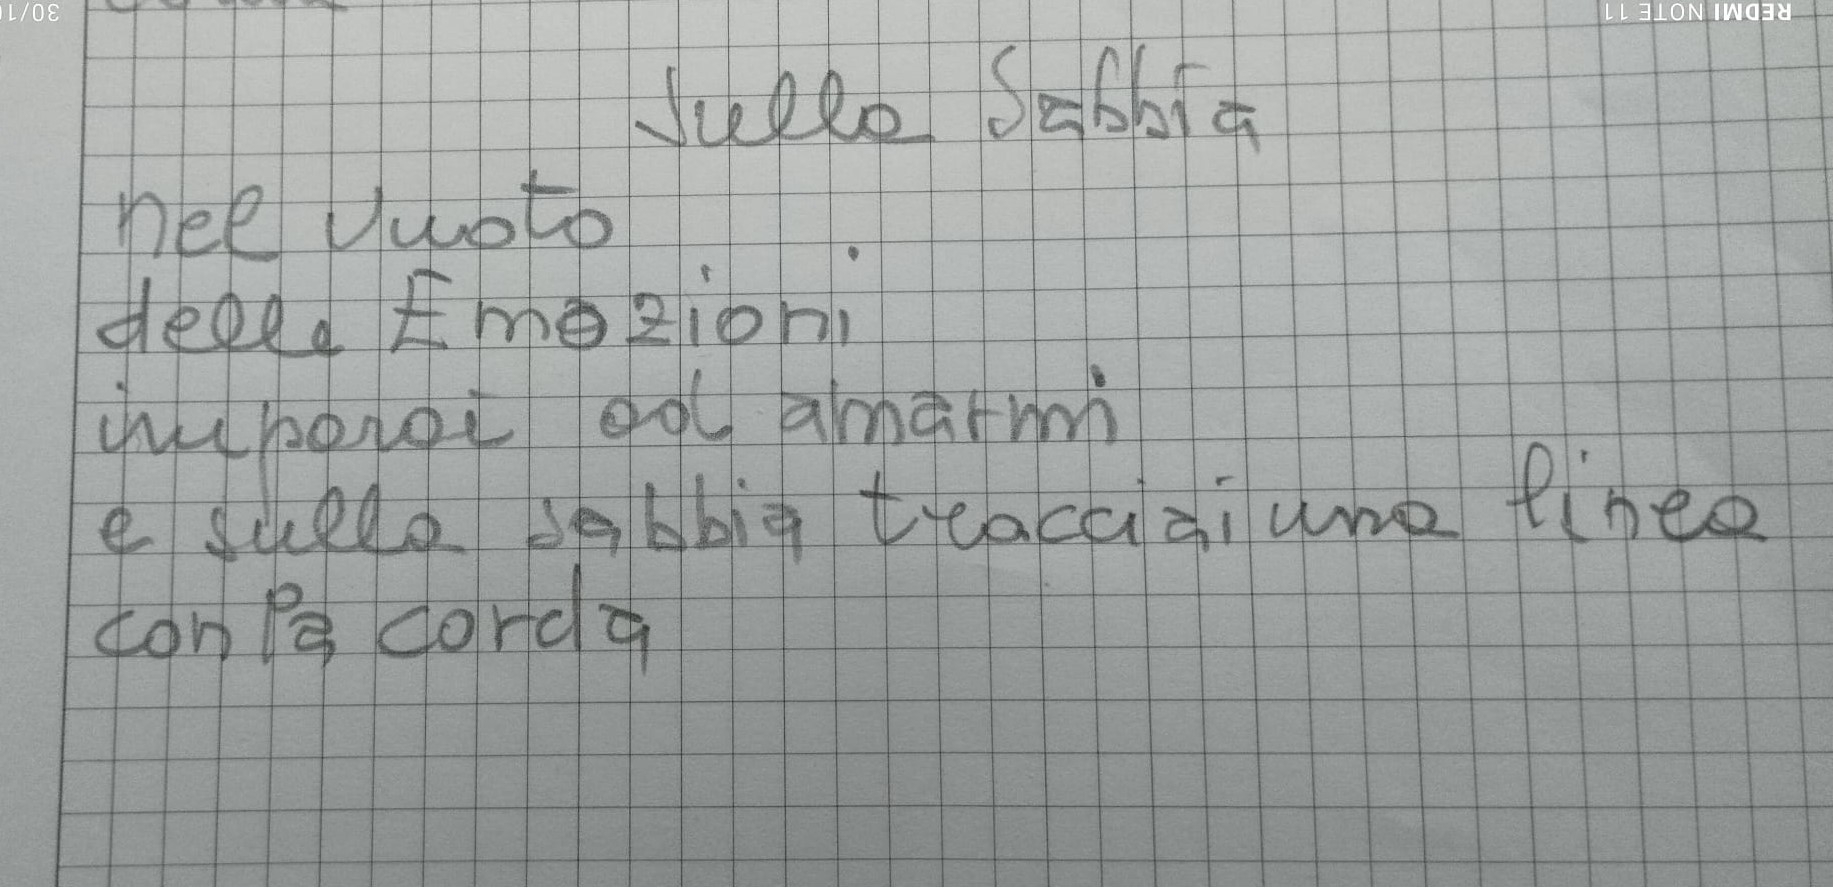 Sulla Sabbia
nel vuoto
delle Emozioni
imparai ad amarmi
e sulla sabbia tracciai una linea
con la corda
REDMI NOTE 11